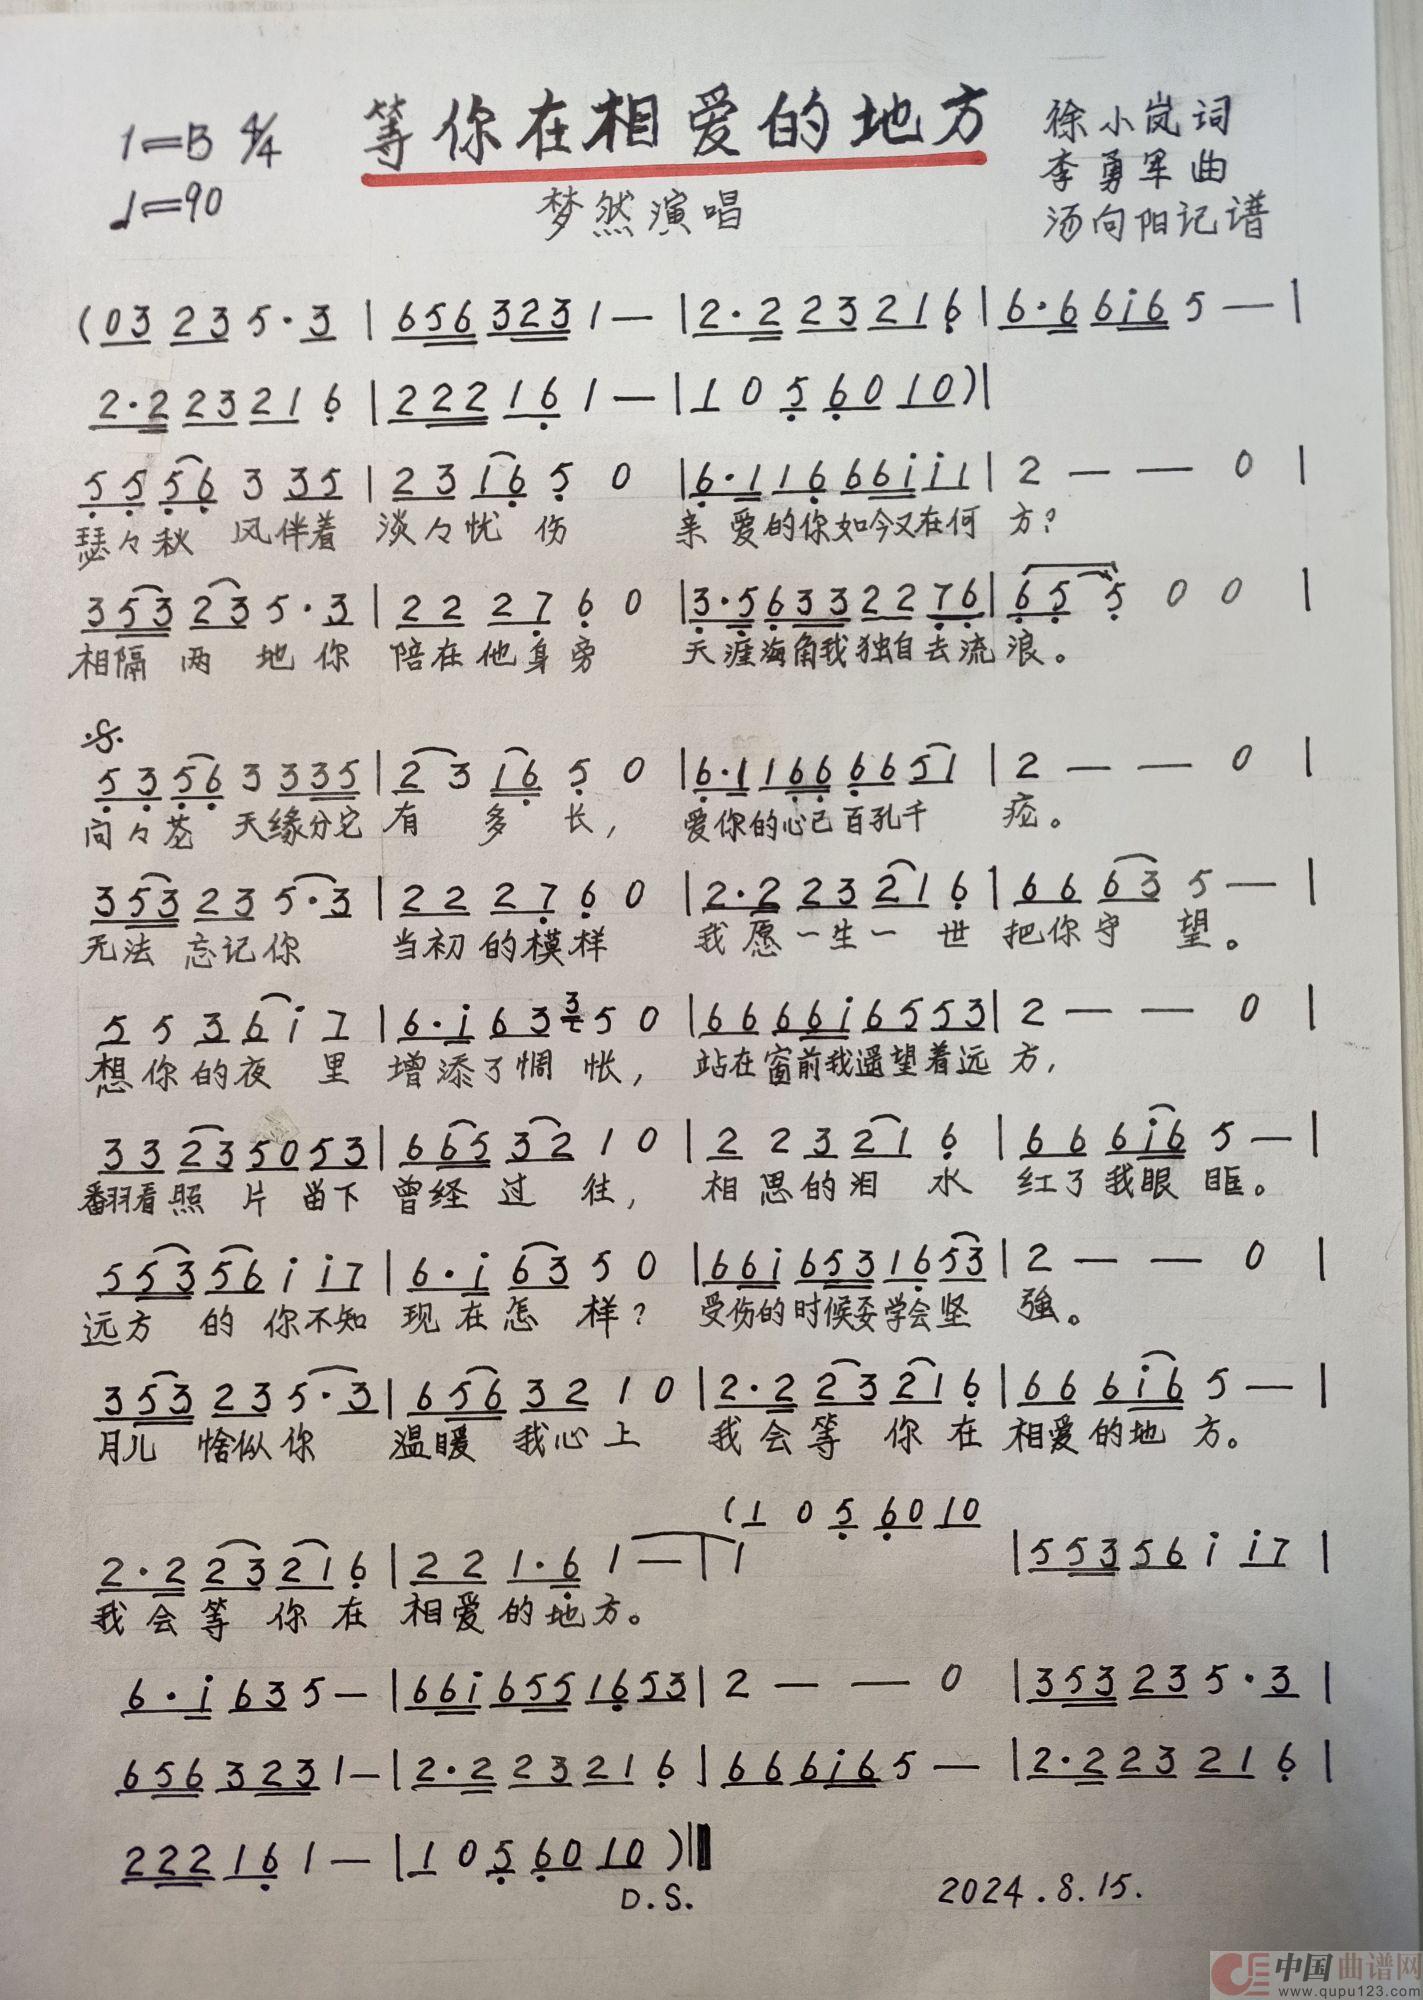 1=B 4/4 等你在相爱的地方 徐小岚词
♩=90 梦然演唱 李勇军曲
汤向阳记谱
(03 23 5·3 | 656 323 1 — | 2·2 23 21 6 | 6·6 6i6 5 — |
2·2 23 21 6 | 222 16 1 — | 1 0 5 60 10 )|
5 5 56 3 35 | 23 16 5 0 | 6·1 16 66i ii1 | 2 — — 0 |
瑟々秋 风伴着 淡々忧 伤 亲爱的你如今又在何 方?
353 23 5·3 | 22 27 6 0 | 3·5 633 22 76 | 65 5 0 0 |
相隔 两 地你 陪在他身旁 天涯海角我独自去流 浪。
5 3 56 3 335 | 2 3 16 5 0 | 6·1 166 66 51 | 2 — — 0 |
问々苍 天缘分它 有 多 长, 爱你的心已百孔千 疮。
353 23 5·3 | 22 27 6 0 | 2·2 23 21 6 | 66 63 5 — |
无法 忘记你 当初的模样 我愿一生一 世 把你守 望。
5 5 3 6 i 7 | 6·i 63 3 5 0 | 66 66i 6553 | 2 — — 0 |
想你的夜 里 增添了惆 怅, 站在窗前我遥望着远 方,
33 23 50 53 | 665 32 1 0 | 2 2 3 21 6 | 66 6i6 5 — |
翻看照 片 留下 曾经 过 往, 相思的泪 水 红了我眼 眶。
553 56 i i7 | 6·i 63 5 0 | 66i 653 16 53 | 2 — — 0 |
远方 的 你不知 现在怎 样? 受伤的时候要学会坚 強。
353 23 5·3 | 656 32 1 0 | 2·2 23 21 6 | 66 6i6 5 — |
月儿 恰似你 温暖 我心上 我会等 你在 相爱的地 方。
(1 0 5 60 10
2·2 23 21 6 | 22 1·6 1 — | 1 | 553 56 i i7 |
我会等 你在 相爱的地方。
6·i 63 5 — | 66i 655 16 53 | 2 — — 0 | 353 23 5·3 |
656 323 1 — | 2·2 23 21 6 | 66 6i6 5 — | 2·2 23 21 6 |
222 16 1 — | 1 0 5 60 10 )‖
D.S. 2024.8.15.
中国曲谱网
www.qupu123.com